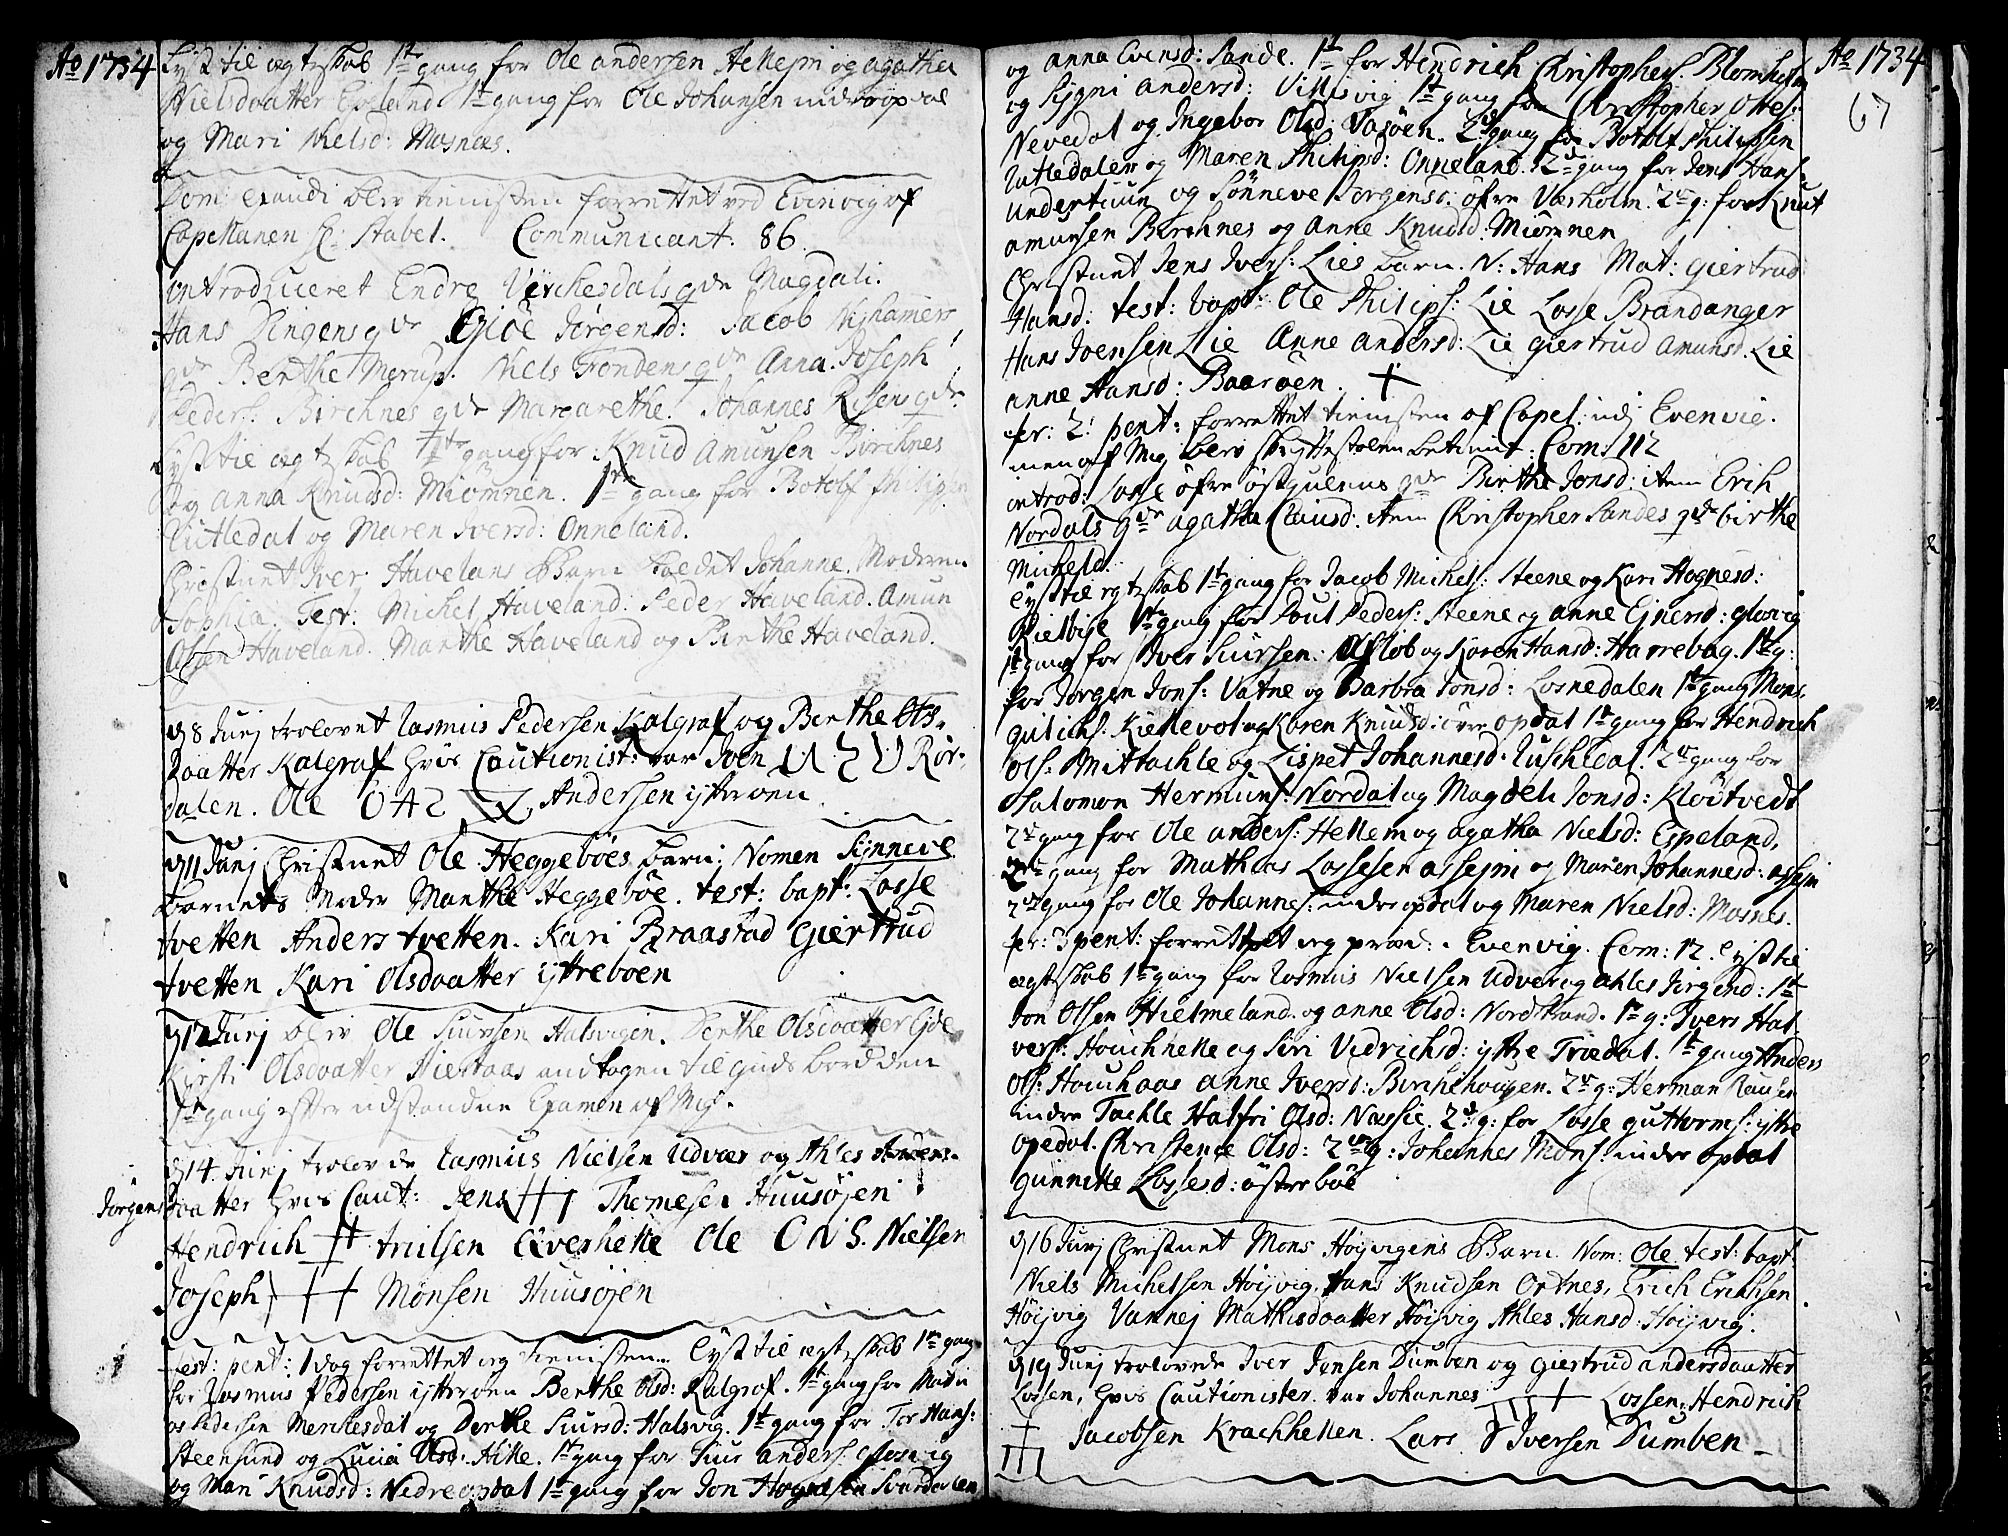 Ao 1734
Lyst til ægteskab 1te gang for Ole andersen Hellejm og agatha
Nielsdaatter Epeland. 1te gang for Ole Johansen indre opdal
og Mari Nielsd: Mosnæs.
Dom: exaudi blev tienisten forrettet ved Evenvig af
Capellanen Hr: Stabel. Communicant. 86.
introduceret Endre Virchesdals qde Magdali.
Hans Dingens qde Gjøe Jørgensd: Jacob Nyhamers
qde Berthe Merup. Niels Fondens qde Anna. Joseph
Peders: Birchnes qde Margarethe. Johannes Risens qde
Lyst til ægteskab 1te gang for Knud Amunsen Birchnes
og Anna Knudsd: Miømnen. 1te gang for Botolf Philipsen
Tutledal og Maren Iversd: Onneland.
Christnet Iver Havelans Barn kaldet Johanne. Moderen
Sophia. Test: Michel Haveland. Peder Haveland. Amun
Olsen Haveland. Marthe Haveland og Birthe Haveland.
d 8 Junj trolovet Rasmus Pedersen Kalgraf og Berthe Ols-
daatter Kalgraf hvis Cautionist: var Iven Rør-
dalen. Ole Andersen ijtterøen
d 11 Junj Christnet Ole Heggebøes barn: Nomen Synneve
Barnets Moder Marthe Heggebøe. test: bapt: Lasse
tvetten Anders tvetten. Kari Braastad Giertrud
tvetten Kari Olsdaatter ijttrebøen
d 12 Junj blev Ole Siursen Halsvigen. Berthe Olsdaatter Gjøe
Kirsti Olsdaatter Hiertaas andtagen til Guds bord den
1te gang efter udstanden Examen af Mig.
d 14 Junj trolovede Rasmus Nielsen Udvær og Ahles
Jørgens daatter hvis Caut: Jens Thomesen Huusøjen
Hendrich truilsen Qverhelle Ole O N S. Nielsen
Joseph Monsen Huusøjen
Fest: pent: 1 dag forrettet ieg tienisten. Lyst til ægteskab 1te gang
for Rasmus Pedersen ijtterøen Berthe Olsd: Kalgraf. 1te gang for
Pedersen Merchesdal og Berthe Siursd: Halsvig. 1te gang for Tor Hans:
Steensund og Lucia Olsd: Hille. 1te gang for Siur anders: glosvig
og Mari Knudsd: Nedreopdal 1te gang for Jon Hognesen Svardalen
Ao 1734
67
og anna Evensd: Sande. 1te for Hendrich Christophers: Blomholm
og Sygni andersd: Villisvig 1te gang for Christopher Oles:
Nevedal og Ingebor Olsd: Vasøen. 2den gang for Botolf Philipsen
Tutledalen og Maren Philipsd: Onneland. 2den gang for Jens Hans:
Undertuun og Sønneve Jørgensd: øfre Værholm. 2de g: for Knut
amunsen Birchnes og Anne Knudsd: Miømnen
Christnet Jens Ivers: Lies barn. N: Hans Mat: giertrud
Hansd: test: bapt: Ole Philips: Lie Lasse Brandanger
Hans Ivensen Lie Anne andersd: Lie giertrud Amunsd: Lie
anne Hansd: Baarøen.
fer: 2: pent: forrettet tienisten af Capel: udj Evenvig.
men af Mig blev skriftestolen betient. Com: 112
introd: Lasse øfre østgulens qde Birthe Jonsd: item Erich
Nordals qde agatha Clausd: item Christopher Sandes qde birthe
Michelsd.
Lyst til ægteskab 1te gang for Jacob Michels: Steene og Kari Hognesd:
Rietvise 1te gang for Poul Peders: Steene og anne Ejnersd: glosvig
1te gang for Iver Siursen: Afløb og Karen Hansd: Harrebag. 1te g:
for Jørgen Jons: Vatne og Barbra Jonsd: Losnedalen 1te gang Mons
gulichs: Kiellevol og Karen Knudsd: opdal 1te gang for Hendrich
Ols: Mittachle og Lispet Johannesd: Ruschedal. 2de gang for
Salomon Hermuns: Nordal og Magdeli Jonsd: Kløvtvedt
2de gang for Ole anders: Hellem og agatha Nielsd: Espeland,
2de gang for Mathias Lassesen assejm og Maren Johannesd: assejm
2de gang for Ole Johannes: indre opdal og Maren Nielsd: Mosnes.
fer: 3 pent: forrettet ieg præd: i Evenvig. Com: 12. Lyst til
ægteskab 1te gang for Rasmus Nielsen Udvær og Ahles Jørgensd: 1te
Jon Olsen Hielmeland. og anne Olsd: Nordstrand. 1te g: Ivers Hal-
vers: Houchnelle og Siri Vedrichsd: ijttre Trædal. 1te gang Anders
Ols: Houchaas anne Iversd: Birchehougen. 2de g: Herman
indre Tachle Halfri Olsd: Nassie. 2de g: for Lasse guttorms: ijttre
Opedal. Christence Olsd: 2de g: Johannes Mons: indre opdal
Gunnille Lassesd: østerbøe
d 16 Junj Christnet Mons Høijvigens Barn. Nom: Ole test: bapt:
Niels Michelsen Høijvig, Hans Knudsen Ortnes, Erich Erichsen
Høijvig Vannej Mathisdaatter Høijvig Ahles Hansd: Høijvig.
d 19 Junj trolovede Iver Jensen Dumben og giertrud andersdaatter
Lossen, hvis Cautionister var Johannes Lossen. Hendrich
Jacobsen Krachhellen. Lars Iversen Dumben